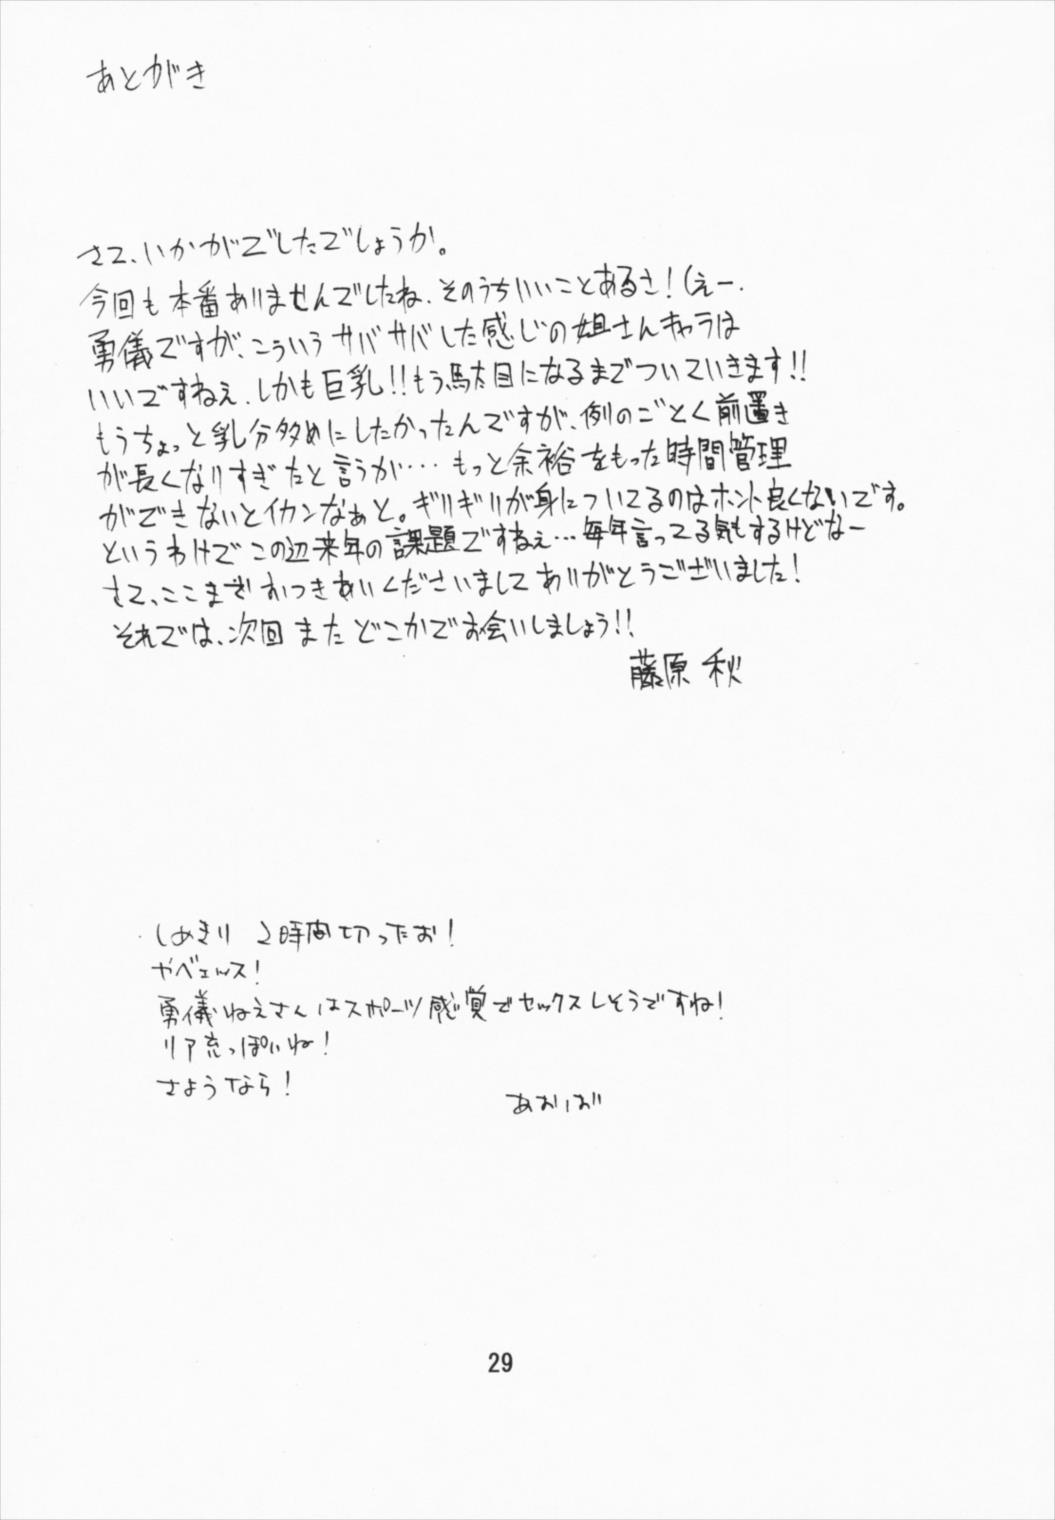 あとがき
さて、いかがでしたでしょうか。
今回も本番ありませんでしたね、そのうちいいことあるさ!(えー、
勇儀ですが、こういうサバサバした感じの姐さんキャラは
いいですねぇ、しかも巨乳!!もう駄目になるまでついていきます!!
もうちょっと乳分多めにしたかったんですが、例のごとく前置き
が長くなりすぎたと言うか… もっと余裕をもった時間管理
ができないとイカンなぁと。ギリギリが身についてるのはホント良くないです。
というわけでこの辺来年の課題ですねぇ…毎年言ってる気もするけどなー
さて、ここまでおつきあいくださいましてありがとうございました!
それでは、次回またどこかでお会いしましょう!!
藤原 秋
しめきり 2時間切ったお!
やべェッス!
勇儀ねえさんはスポーツ感覚でセックスしそうですね!
リア充っぽいね!
さようなら!
あおいお
29